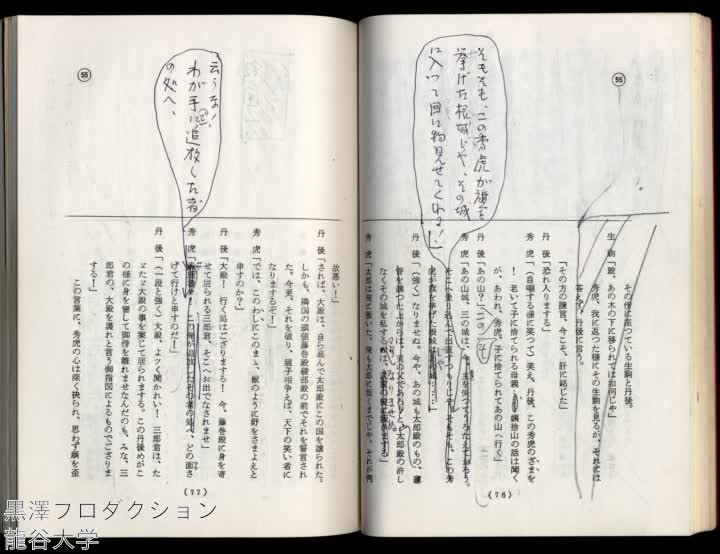 55
そもそも、この秀虎が旗を
挙げた根城じや、その城
に入つて回に物見せてくれる！
その傍に座つている生駒と丹後。
生駒「殿、あの木の下に移られては如何じや」
秀虎、我に返つた様にその生駒を見るが、それには
答えず、丹後に言う。
「その方の諫言、今こそ、肝に銘じた」
丹後「恐れ入りまする」
秀虎「（自嘲する様に笑つて）笑え、丹後、この秀虎のざまを
！老いて子に捨てられる母親、姨捨山の話は聞く
が、あわれ、秀虎、子に捨てられてあの山へ行く」
丹後「あの山？」
秀虎「あの山城、三の城は、今、主を失つてうろたえておろう。
そこへ乗り込んで出直すつもりじや。
丹後「（強く）なりませぬ。今や、あの城も太郎殿のもの、家
督を譲つた上からは、実の父であろうと、太郎殿の許し
なくその城を私するのは
秀虎「太郎は俺に叛いた。
(76)
55
云うな！
わが手に追放した者
の処へ、
故悪い！」
丹後「されば、大殿は、自ら進んで太郎殿にこの国を譲られた。
しかも、隣国の頭領藤巻殿綾部殿の前でそれを誓言され
た。今更、それを破り、親子相争えば、天下の笑い者に
なりまするぞ！」
秀虎「では、このわしにこのまゝ、獣のように野をさまよえと
申すのか？」
丹後「大殿！行く処はござりまする！今、藤巻殿に身を寄
せて居られる三郎君、そこへお出でなされませ」
秀虎
この俺が追放したその者の処へ、どの面さ
げて行けと申すのだ！」
丹後「（一段と強く）大殿、よツく聞かれい！三郎君は、た
ゞたゞ大殿の事を案じて居られまする。この丹後めがこ
の様に身を窶して御傍を離れませなんだのも、みな、三
郎君の、大殿を護れと言う御指図によるものでござりま
する！」
この言葉に、秀虎の心は深く抉られ、思わず顔を歪
(77)
黒澤プロダクション
龍谷大学